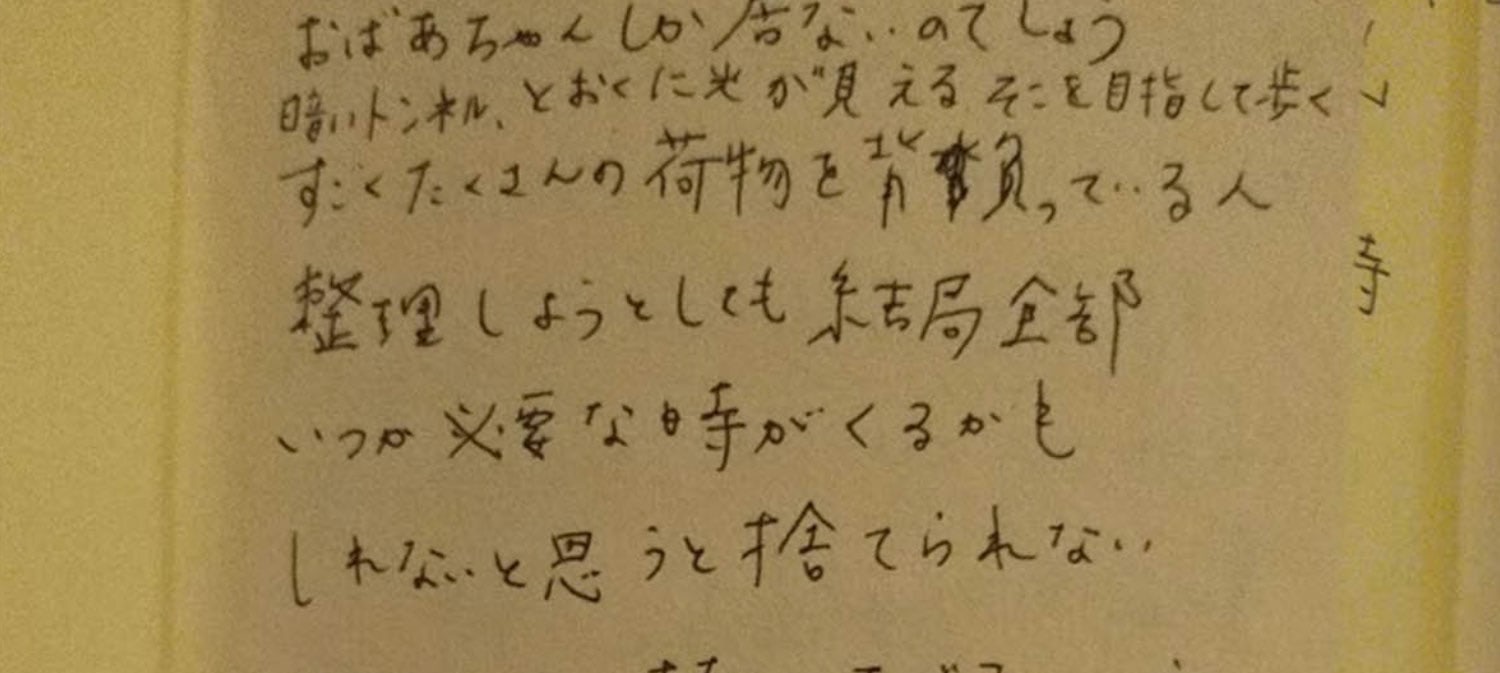 おばあちゃんしか居ないのでしょう
暗いトンネル、とおくに光が見えるそこを目指して歩く
すごくたくさんの荷物を背負っている人
整理しようとしても結局全部
いつか必要な時がくるかも
しれないと思うと捨てられない
寺